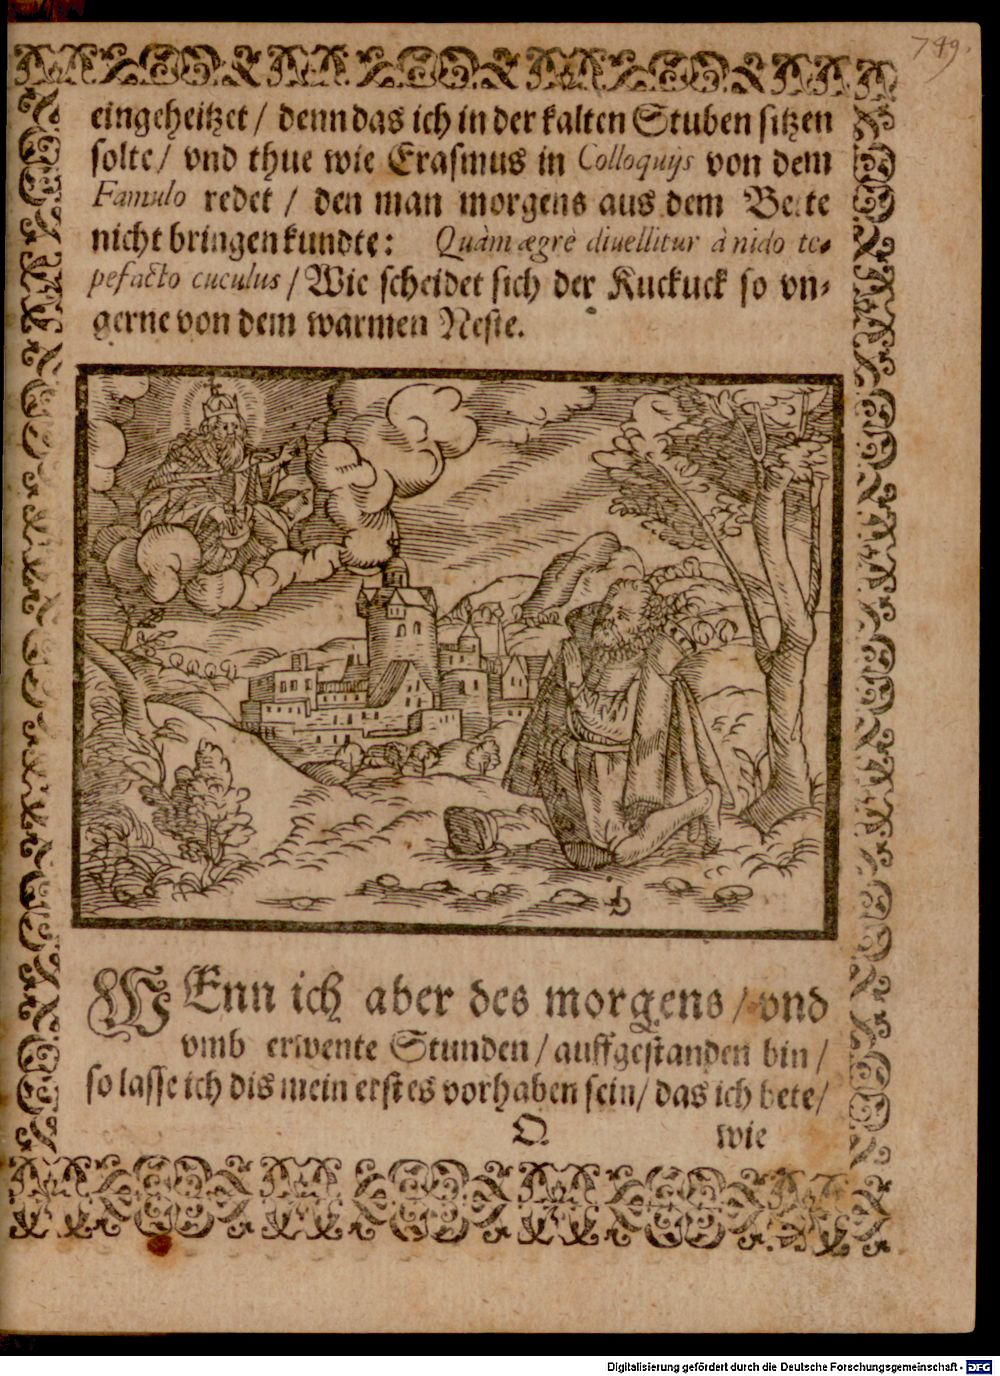 749.
eingeheitzet / denn das ich in der kalten Stuben sitzen
solte / vnd thue wie Erasmus in Colloquijs von dem
Famulo redet / den man morgens aus dem Bette
nicht bringen kundte: Quàm ægrè diuellitur à nido te-
pefacto cuculus / Wie scheidet sich der Kuckuck so vn-
gerne von dem warmen Neste.
WEnn ich aber des morgens / vnd
vmb erwente Stunden / auffgestanden bin /
so lasse ich dis mein erstes vorhaben sein / das ich bete /
O
wie
Digitalisierung gefördert durch die Deutsche Forschungsgemeinschaft - DFG